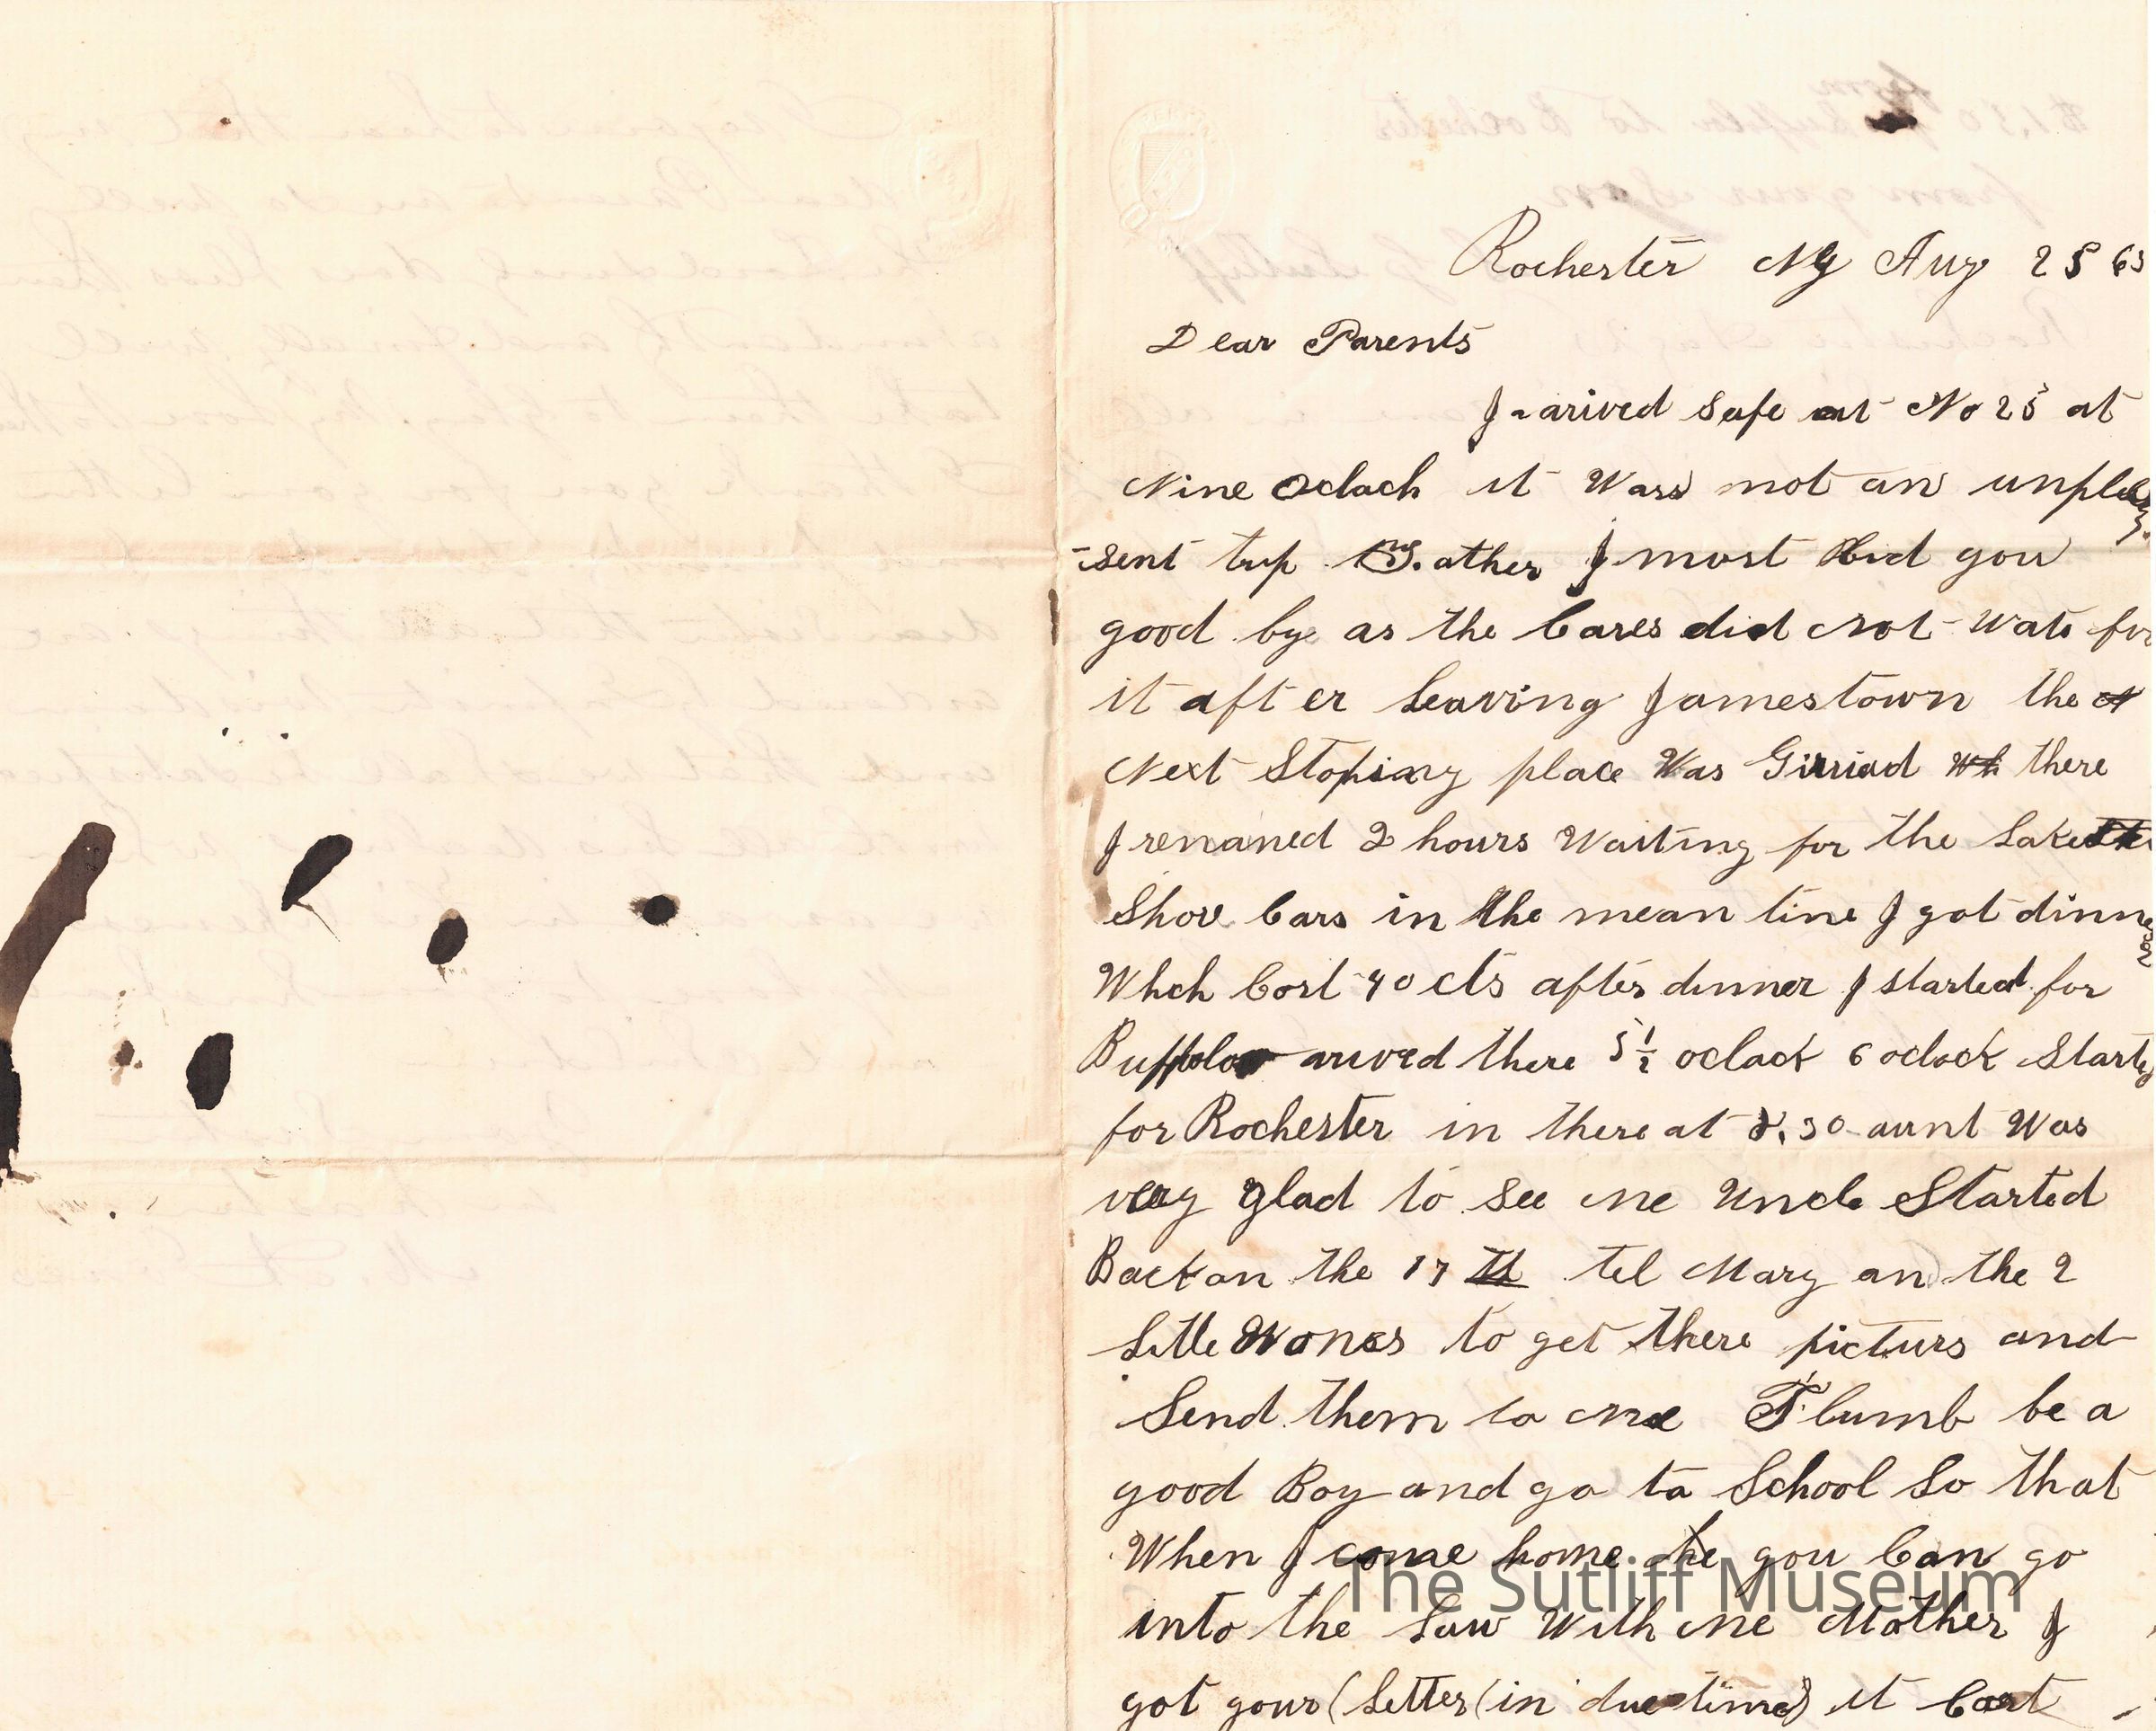 Rochester NY Aug 25 63
Dear Parents
I arived safe at No 25 at
Nine Oclock it Was not an unplea
-sent trip Father I must bid you
good by as the Cares did Not wate for
it after Leaving Jamestown the
Next Stoping place Was Girriad there
I remaned 2 hours Waiting for the Lake
Shore Cars in the mean time I got dinner
Which Cost 40 cts after dinner I started for
Buffalo arived there 5 1/2 oclock 6 oclock Started
for Rochester in there at 8.30 aunt Was
very glad to see me Uncle Started
Back on the 17 th tel Mary an the 2
Little Wones to get there picturs and
Send them to me Plumb be a
good Boy and go to School So that
When I come home you Can go
into the Law With me Mother I
got your (Letter (in due time) it Cost
The Sutliff Museum